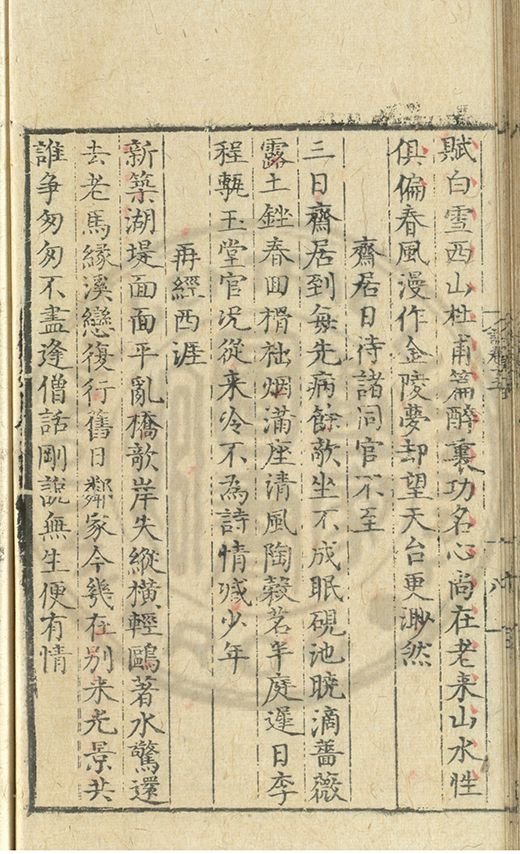 賦白雪西山杜甫篇醉裏功名心尚在老来山水性
俱偏春風漫作金陵夢却望天台更渺然
齋居日待諸同官不至
三日齋居到每先病餘敧坐不成眠硯池曉滴薔薇
露土銼春回榾柮烟滿座清風陶穀茗半庭遲日李
程甎玉堂官况從来冷不為詩情减少年
再經西涯
新築湖堤面面平亂橋敧岸失縱橫輕鷗著水驚還
去老馬緣溪戀復行舊日鄰家今幾在别来光景共
誰争匆匆不盡逢僧話剛說無生便有情